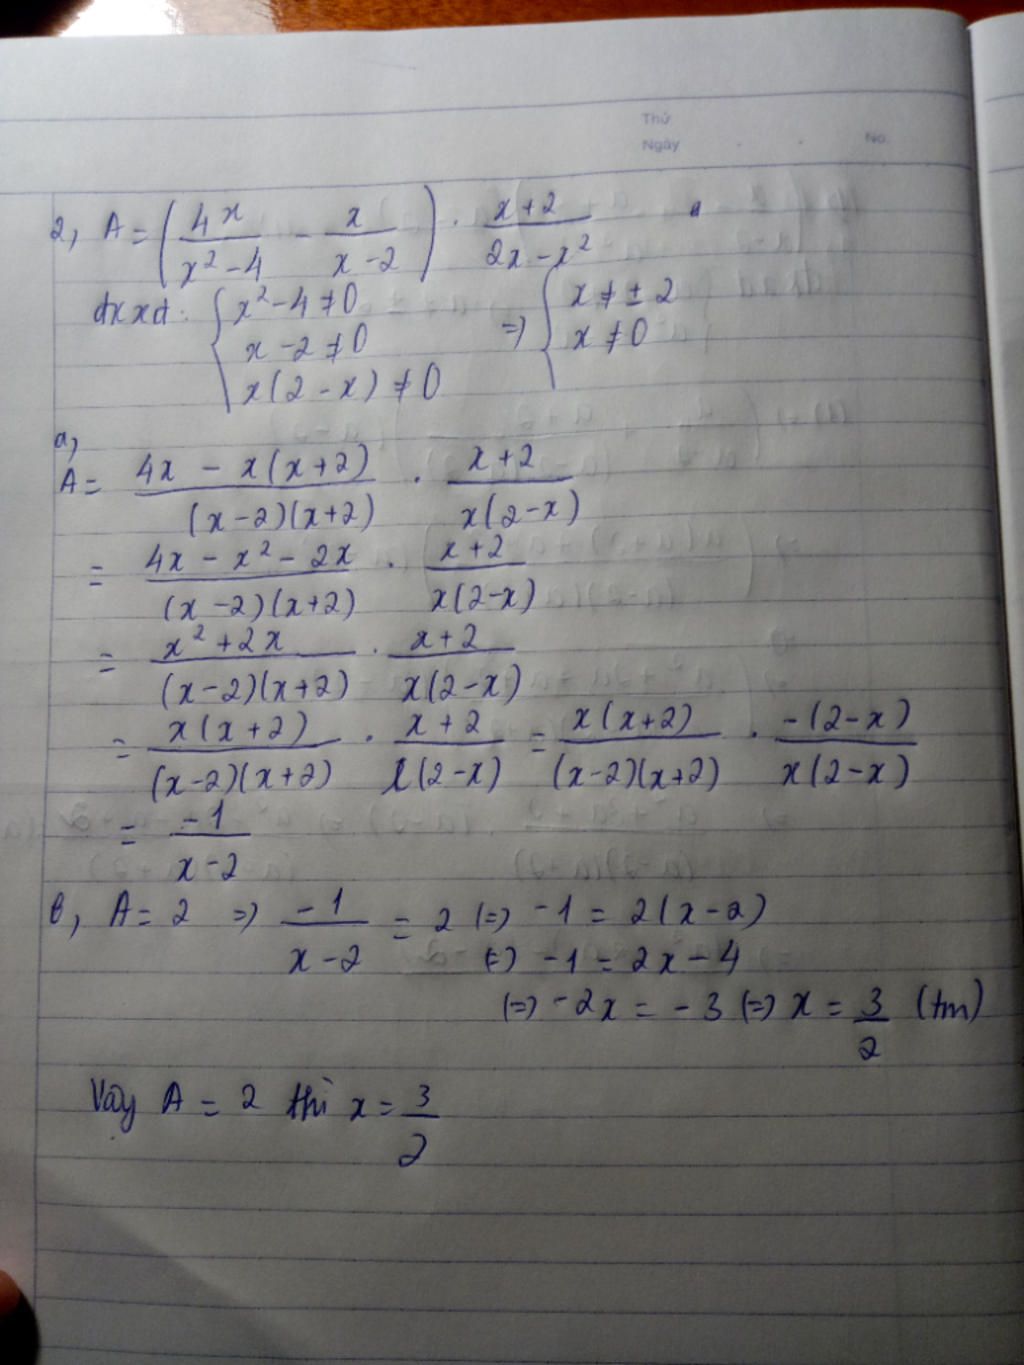 Thứ
Ngày No.
2, A = ( 4x / x² - 4 - x / x - 2 ) . x + 2 / 2x - x²
đkxđ: { x² - 4 ≠ 0 => { x ≠ ± 2
x - 2 ≠ 0 x ≠ 0
x(2 - x) ≠ 0
a,
A = 4x - x(x+2) / (x-2)(x+2) . x+2 / x(2-x)
= 4x - x² - 2x / (x-2)(x+2) . x+2 / x(2-x)
= x² + 2x / (x-2)(x+2) . x+2 / x(2-x)
= x(x+2) / (x-2)(x+2) . x+2 / x(2-x) = x(x+2) / (x-2)(x+2) . -(2-x) / x(2-x)
= -1 / x-2
b, A = 2 => -1 / x-2 = 2 (=) -1 = 2(x-2)
(=) -1 = 2x - 4
(=) -2x = -3 (=) x = 3 / 2 (tm)
Vậy A = 2 thì x = 3 / 2